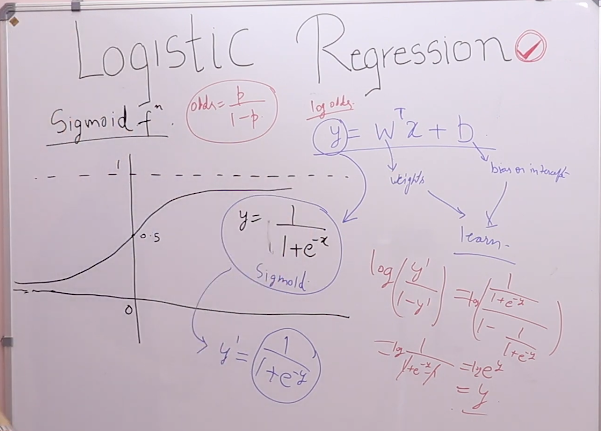 Logistic Regression
Sigmoid fⁿ.
odds = p / 1-p
log odds
y = wᵀx + b
weights
bias or intercept
learn
1
0.5
0
y = 1 / 1+e⁻ˣ
Sigmoid
y' = 1 / 1+e⁻ʸ
log( y' / 1-y' ) = log( 1 / 1+e⁻ʸ / 1 - 1 / 1+e⁻ʸ )
= log 1 / 1+e⁻ʸ-1 = log eʸ
= y